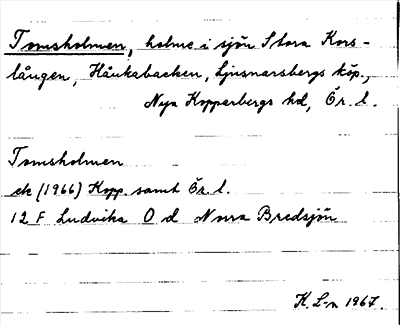 Tomsholmen, holme i sjön Stora Kors-
lången, Håukabacken, Ljusnarsbergs köp.,
Nya Kopparbergs hd, Ör. l.
Tomsholmen
ek (1966) Kopp. samt Ör. l.
12 F Ludvika O d Norra Bredsjön
K. L-n 1967.